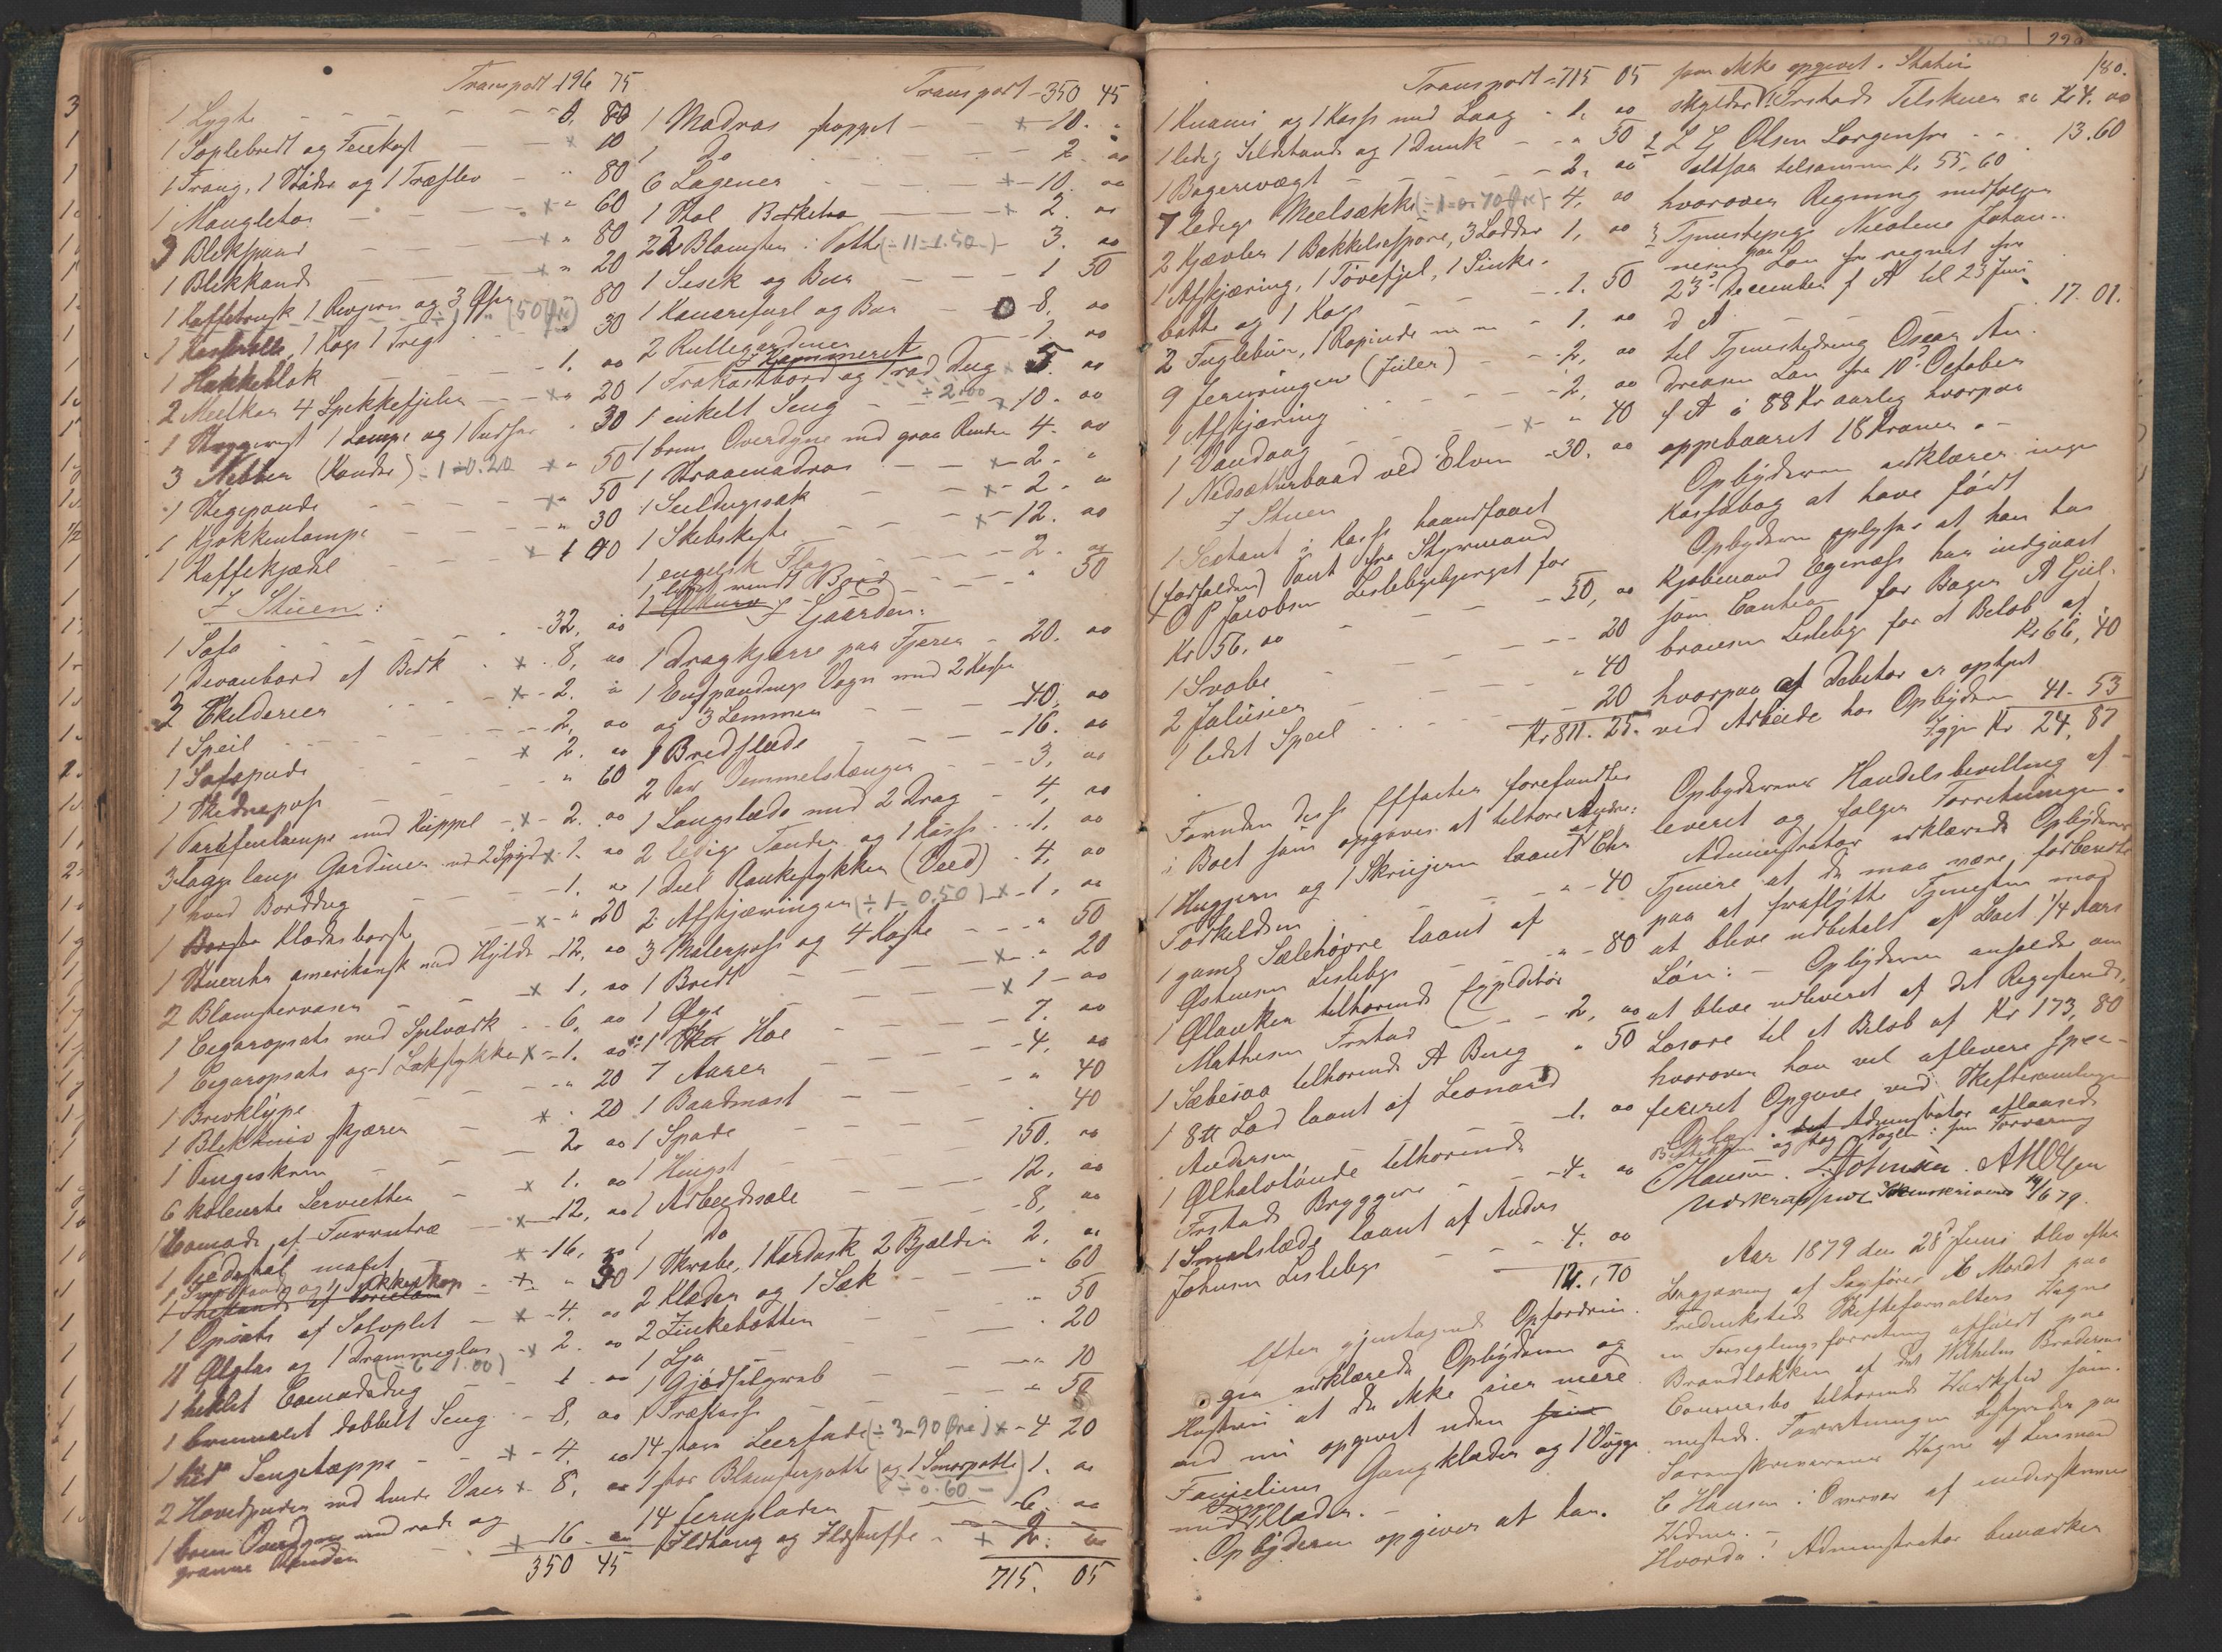 Transport 196 75
1 Lygte 0. 80
1 Soplebredt og Feiekost × 10
1 Traug, 1 Bøtte og 1 Træflev " 80
1 Mangletøi ×" 60
3 Blikspand ×" 80
1 Blikkande ×" 20
1 Kaffebrænk 1 Rivjern og 3 (50 Øre) 80
1 Kasserolle, 1 Kop 1 Tragt 30
1 Hakkeblok 1. 00
2 Meelkar 4 Spekkefjeler ×" 20
1 1 Lampe og 1 30
3 (Kander) ÷ 1 = 0.20 ×" 50
1 Stegepande ×" 50
1 Kjøkkenlampe " 30
1 Kaffekjædel × 1 40
I Stuen:
1 Sofa 32, 00
1 Divanbord af Birk × 8, 00
3 Skilderier × 2.
1 Speil 2, 00
1 Sofapude × 2. 00
1 " 60
1 Parafinlampe med Kuppel × 2. 00
3 Fag lange Gardiner med 2 × 1. 00
1 hvid Borddug 1. 00
1 Børste Klædesbørste ×" 20
1 Stueuhr amerikansk med Hylde 12, 00
2 Blomstervaser × 1, 00
1 Cigaropsats med Spilværk 6, 00
1 Cigaropsats og 1 Lakstykke × 1. 00
1 Brevklype " 20
1 Blik skjærer × 20
1 Pengeskrin 2 00
6 kolørte Servietter × 1. 00
1 Comode af Furrutræ × 12, 00
1 Pedestal malet × 16, 00
1 og 1 Sukkerkop × " 30
1 Opsats af Sølvplet × 4. 00
11 Ølglas og 1 Drammeglas × 2. 00
(÷ 6 = 1.00)
1 heklet Comodedug 1 00
1 brunmalet dobbelt Seng 8, 00
1 hvid Sengetæppe × 4. 00
2 Hovedpuder med hvide Vaer × 8, 00
1 brun Overdyne med røde og
grønne Render × 16 00
350 45
Transport 350 45
1 Madras stoppet × 10. "
1 do 2. 00
6 Lagener × 10. 00
1 Stol Birketræ × 2. 00
22 Blomster i Potte (÷ 11 = 1.50) 3. 00
1 Sisik og Buer 1 50
1 Kanarifugl og Buer 8. 00
2 Rullegardiner 1. 00
I Kammeret
1 Frokostbord og 1 rød Dug 5. 00
÷ 2.00
1 enkelt Seng × 10. 00
1 brun Overdyne med graa Render 4. 00
1 Straamadras × 2. "
1 Seildugssæk × 2. "
1 Skibskiste × 12. 00
1 engelsk Flag 2. 00
1 lidet rundt Bord " 50
I Gaarden:
1 Dragkjærre paa Fjærer 20. 00
1 Enspændings Vogn med 2 Kasser
og 3 Lemmer 40. 00
1 Bredslæde 16. 00
2 Par Vommelstænger 3, 00
1 Langslæde med 2 Drag 4, 00
2 ledige Tønder og 1 Kasse 1, 00
1 Deel Rankestykker (Veed) 4. 00
2 Afskjæringer (÷ 1 = 0.50) × 1, 00
3 Malerposs og 4 Koste " 50
1 Bredt × " 20
1 Øxe × 1 00
1 Hoe 7. 00
7 Aarer 4, 00
1 Baadmast " 40
1 Spade 40
1 Hingst 150. 00
1 Arbeidssæle 12, 00
1 do 8, 00
1 Skrabe, 1 Kardusk 2 Bjælder 2, 00
2 Klæder og 1 Sæk " 60
2 Zinkebøtter " 50
1 Lja 20
1 Gjødselgreb " 10
1 Trækasse " 50
14 store Leerfade (÷ 3 = 90 Øre) × 4 20
1 stor Blomsterpotte (og 1 Smørpotte) 1. 00
÷ 0.60
14 Jernplader 6. 00
Ildtang og Ildskuffe × 2. 00
715. 05
180.
Transport 715 05
1 og 1 Kasse med Laag 1. 00
1 ledig Sildetønde og 1 Dunk " 50
1 Bagerevægt 2, 00
7 ledige Meelsække (÷ 1 = 0.70 Øre) 4, 00
2 Kjævler 1 Bakkelsespore, 3 Lodder 1, 00
1 Afskjæring, 1 Tøvefjel, 1 Sinke-
bøtte og 1 Kop 1. 50
2 Fuglebuer, 1 Kopinde 1. 00
9 Jernringer (Juler) 2, 00
1 Afskjæring 2, 00
1 Vandaag ×" 40
1 Nedsætterbaad ved Elven 30. 00
I Stuen
1 Sextant i Kasse haandfaaet
(forfalden) Pant fra Styrmand
O P Jacobsen Lislebybjerget for
Kr 56, 00 50, 00
1 Svabe 20
2 Jalusier " 40
1 lidet Speil 20
Kr 811. 25.
Foruden disse Effecter forefandtes
i Boet som opgaves at tilhøre Andre:
1 Huggjern og 1 Skruejern laant af Chr
Torkildsen " 40
1 gamel Sælehøvre laant af
Østensen Lisleby " 80
1 Ølanker tilhørende Expeditør
Mathisen Frstad 2, 00
1 Sæbesaa tilhørende A Berg " 50
1 8 ℔ Lod laant af Leonard
Andersen 1. 00
1 Ølhalvtønde tilhørende
Frstads Bryggeri 4. 00
1 Smalslæde laant af Anders
Johnsen Lisleby 4. 00
12., 70
Efter gjentagende Opfordrin-
gen erklærede Opbyderen og
Hustru at de ikke eier mere
end nu opgivet uden
Familiens Gangklæder og 1 Vugge
med Klæder. -
Opbyderen opgiver at han
som ikke opgivet i Status
skylder 1. Frstads Tilskuer Kr 4. 00
2 L G Olsen Lorgenfri 13.60
altsaa tilsammen Kr 55,60
hvorover Regning medfølger
3 Tjenestepige Nicoline Johan-
nesen paa Løn fra regnet fra
23de December f A til 23 Juni
d A 17. 01.
til Tjenestedreng Oscar An-
dreasen Løn fra 10de October
f A à 88 Kr aarlig hvorpaa
oppebaaret 18 Kroner. -
Opbyderen erklærer ingen
Kassabog at have ført
Opbyderen oplyser at han hos
Kjøbmand Egenæss har indgaaet
som Caution for Bager A Gul-
bransen Lisleby for et Beløb af
Kr 66, 40
hvorpaa af Debitor er optjent
ved Arbeide hos Opbyderen 41. 53
Igjen Kr 24, 87
Opbyderens Handelsbevilling af-
leveret og følger Forretningen.
Administrator erklærede Opbyderens
Tjenere at de maa være forberedte
paa at fraflytte Tjenesten mod
at blive udbetalt af Boet 1/4 Aars
Løn: - Opbyderen anholder om
at blive udleveret af det Registrerede
Løsøre til et Beløb af Kr 173, 80
hvorover han vil aflevere speci-
ficeret Opgave ved Skiftesamlingen
Oplæst. Administrator aflaasede
og tog Nøglen i sin Forvaring
C Hansen. Johnsen. A H Olsen
Udskrift Sorenskriveren 14/6 79.
Aar 1879 den 28de Juni blev efter
Begjæring af Sagfører C Mordt paa
Frederikstads Skifteforvalters Vegne
en Forseglingsforretning afholdt paa
Brandlokken af det Wilhelm Brodersens
Concursbo tilhørende Værksted sam-
mesteds. Forretningen bestyredes paa
Sorenskriverens Vegne af Lensmand
C Hansen i Overvær af underskrevne
Vidner. -
Hvorda! Administrator bemærker